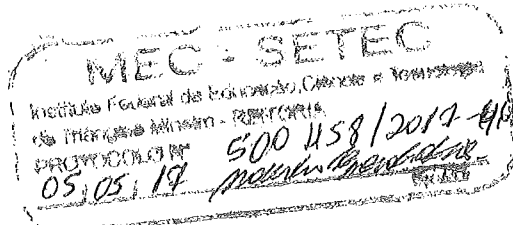 MEC - SETEC
Instituto Federal de Educação, Ciência e Tecnologia
do Triângulo Mineiro - REITORIA
PROTOCOLO Nº 500 458/2017-
05, 05, 17